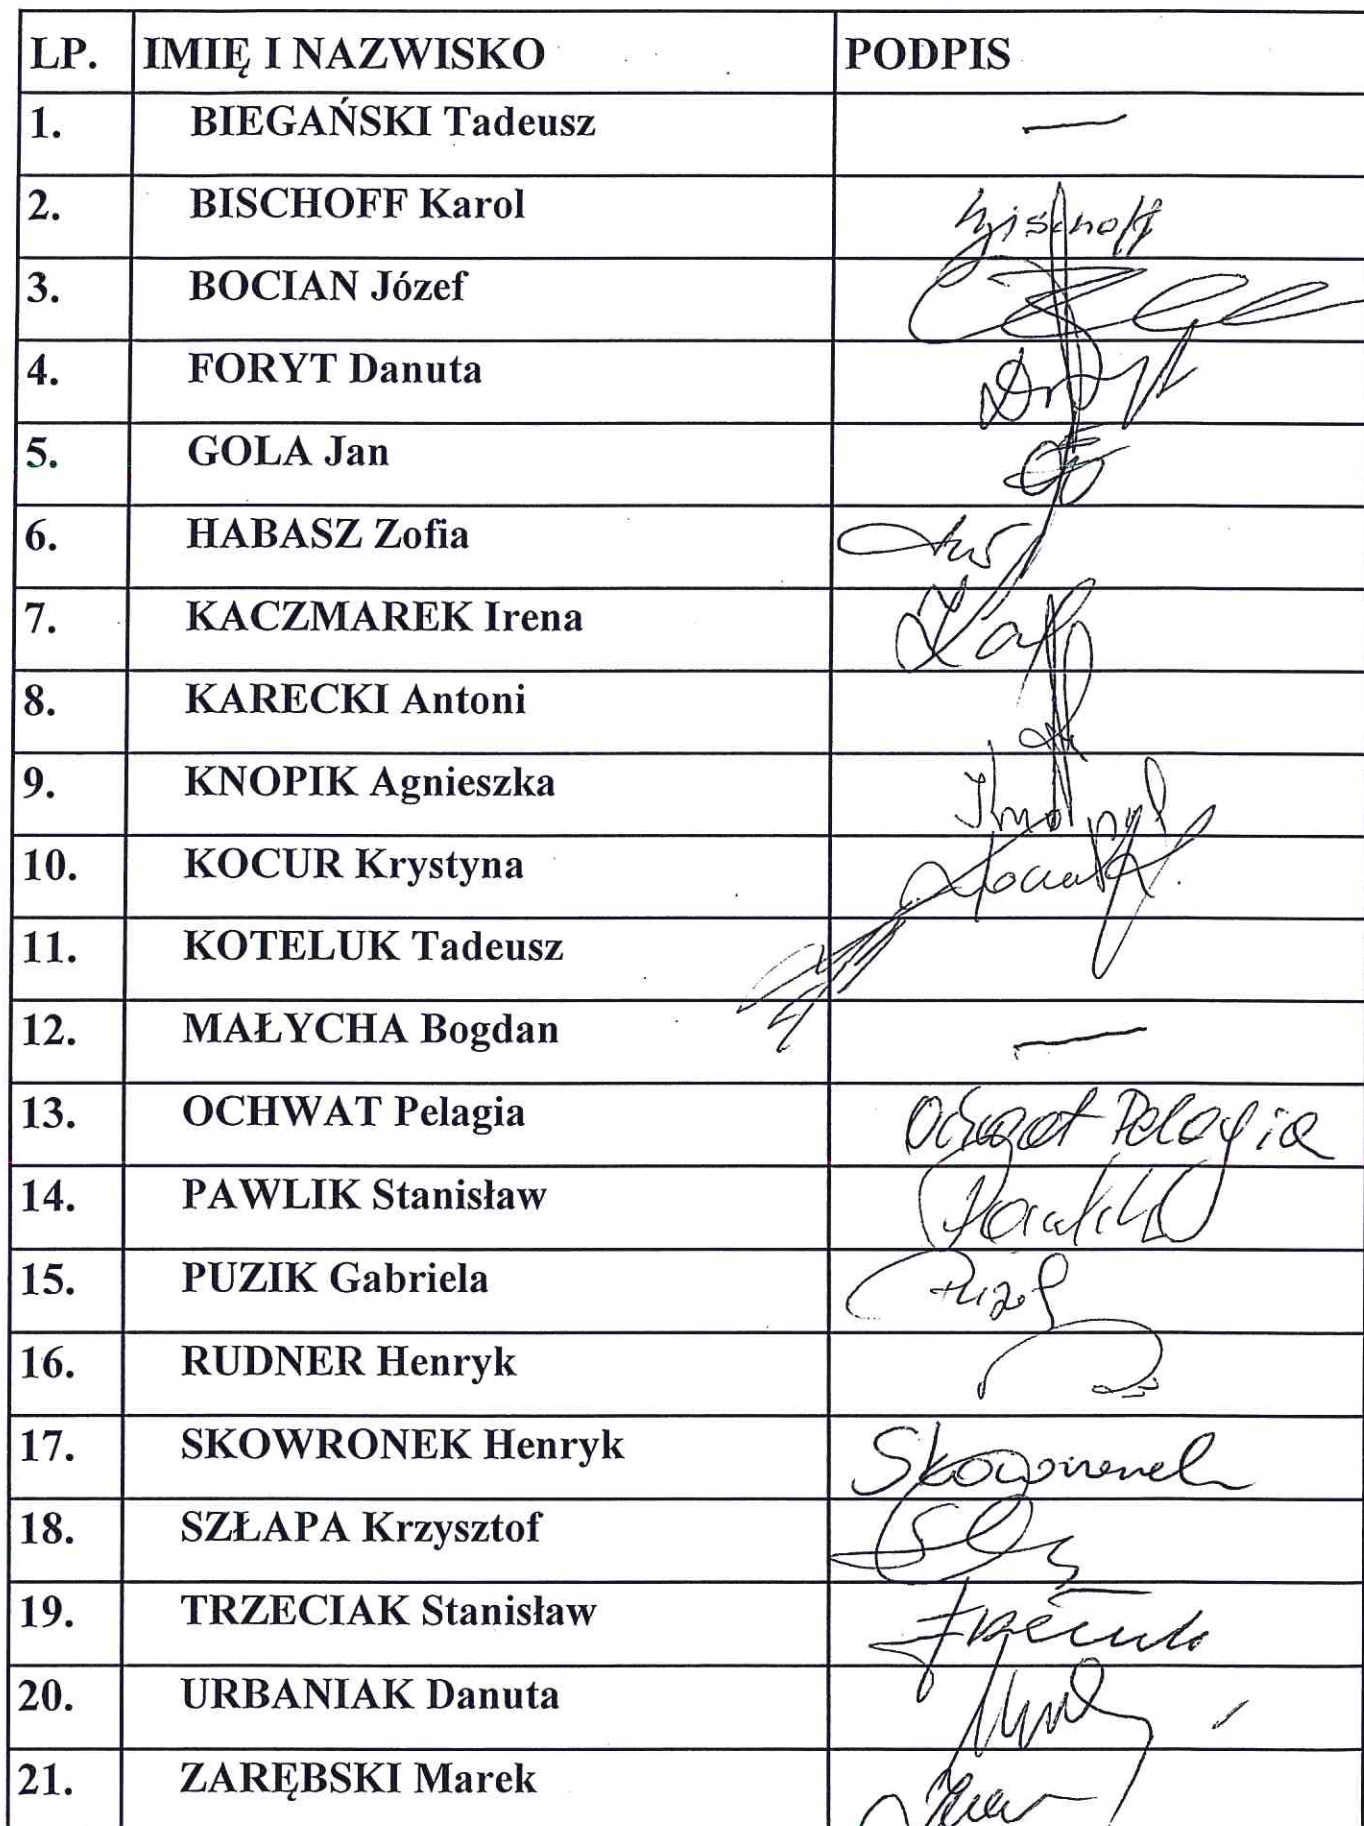 LP. IMIĘ I NAZWISKO PODPIS
1. BIEGAŃSKI Tadeusz —
2. BISCHOFF Karol Bischoff
3. BOCIAN Józef
4. FORYT Danuta
5. GOLA Jan
6. HABASZ Zofia
7. KACZMAREK Irena
8. KARECKI Antoni
9. KNOPIK Agnieszka
10. KOCUR Krystyna
11. KOTELUK Tadeusz
12. MAŁYCHA Bogdan —
13. OCHWAT Pelagia Ochwat Pelagia
14. PAWLIK Stanisław
15. PUZIK Gabriela
16. RUDNER Henryk
17. SKOWRONEK Henryk Skowronek
18. SZŁAPA Krzysztof
19. TRZECIAK Stanisław
20. URBANIAK Danuta
21. ZARĘBSKI Marek